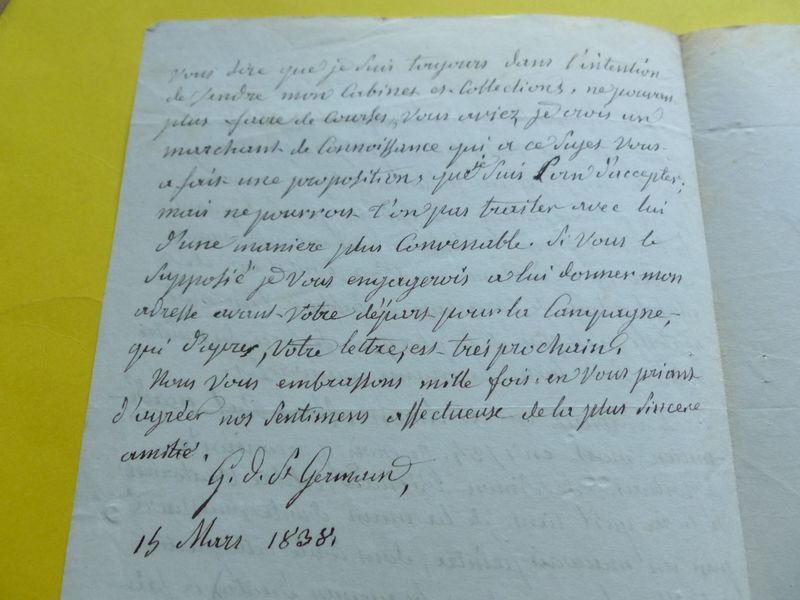 Vous dire que je suis toujours dans l'intention
de vendre mon Cabinet et Collections, ne pouvant
plus faire de courses, Vous aviez, je crois un
marchant de Connoissance qui a ce sujet Vous
a fait une proposition, que je suis Loin d'accepter;
mais ne pourrois t'on pas traiter avec lui
d'une maniere plus Convenable. Si Vous le
Supposié je Vous engagerois a lui donner mon
adresse avant Votre départ pour la Campagne,
qui d'apres, Votre lettre, est très prochain,
Nous Vous embrassons mille fois, en Vous priant
d'agréer nos Sentimens affectueuse de la plus Sincere
amitié.
G. d. St Germain,
15 Mars 1838.